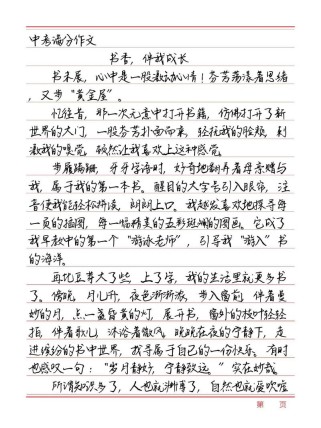 中考满分作文
书香，伴我成长
书未展，心中是一股激动心情！芬芳荡漾着思绪
，又步“黄金屋”。
忆往昔，那一次无意中打开书籍，仿佛打开了新
世界的大门，一股芬芳扑面而来，轻抚我的脸颊，刺
激我的嗅觉，较然让我喜欢上这种感觉。
步履蹒跚，牙牙学语时，好奇地翻弄着母亲赠与
我，属于我的第一本书。醒目的大字号引入眼帘，注
音使我能轻松拼读，朗朗上口。我越发喜欢地探寻每
一页的插图，每一幅精美的五彩斑斓的图画。它成了
我早教中的第一个“游泳老师”，引导我“游入”书
的海洋。
再比豆芽大了些，上了学，我的生活里就更多书
了。傍晚，月儿升，夜色渐渐浓，步入窗前，伴着曼
妙的月，点一盏昏黄的灯，展开书，窗外的枝叶轻轻
拍，伴着歌儿，沐浴着微风，晚晚在夜的宁静下，走
进缤纷的书中世界，找寻属于自己的一份快乐。有时
也感叹一句：“岁月静好，宁静致远。”实在妙哉。
所谓知识多了，人也就渊博了，自然也就喜欢炫
第 页